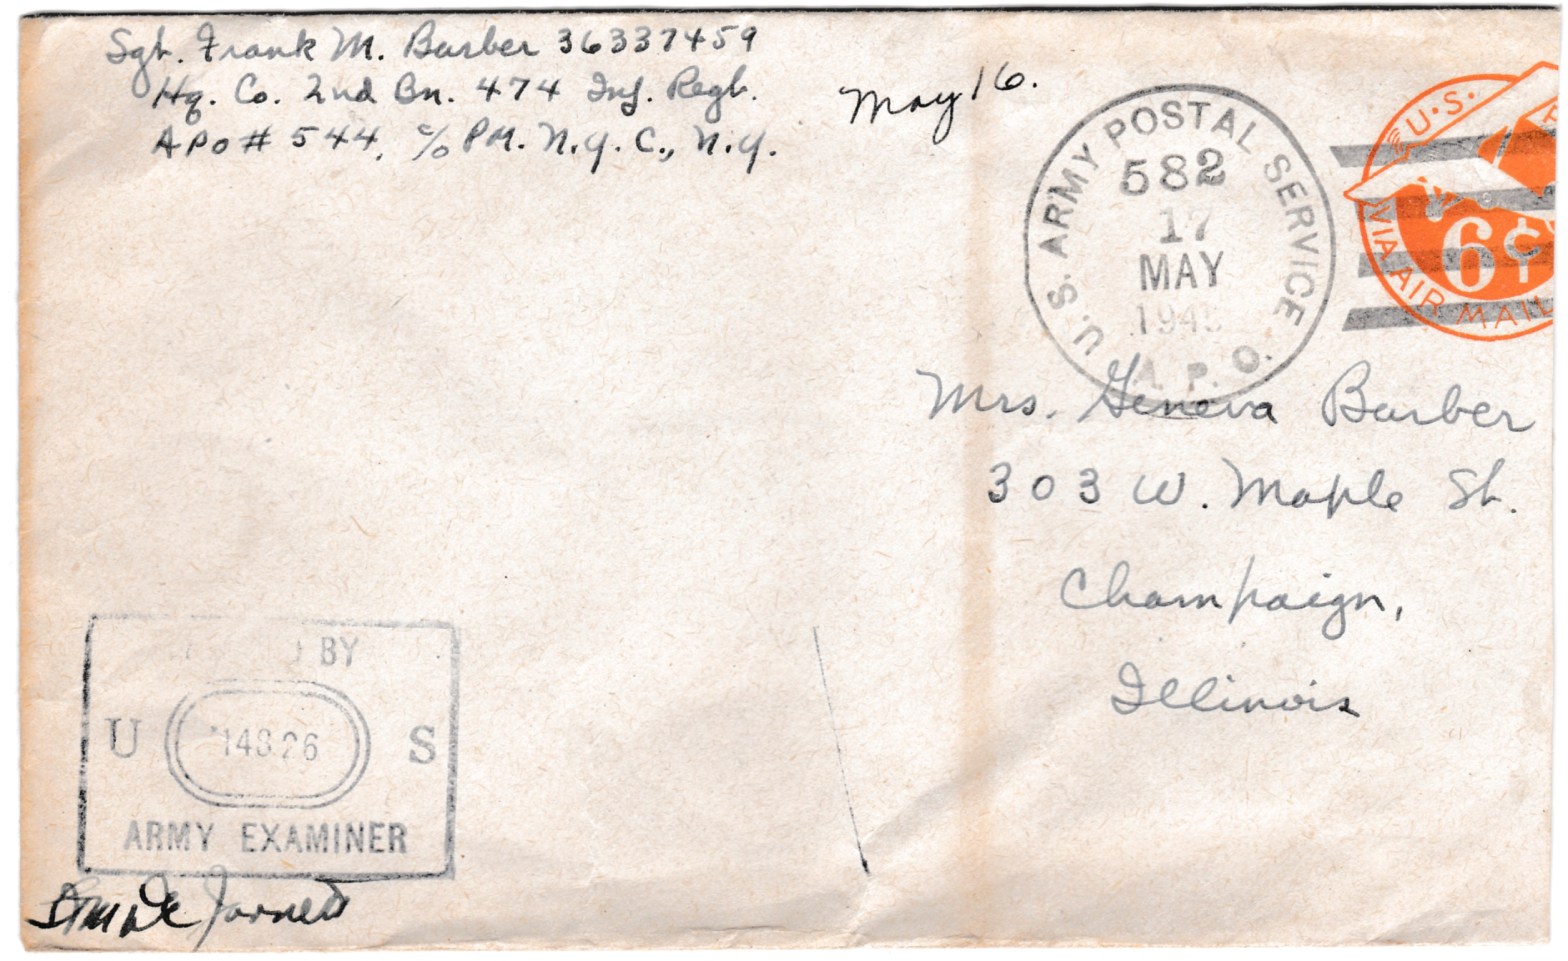 Sgt. Frank M. Barber 36337459
Hq. Co. 2nd Bn. 474 Inf. Regt.
APO # 544, c/o PM. N.Y.C., N.Y.
May 16.
U.S. ARMY POSTAL SERVICE
582
17
MAY
A.P.O.
U.S.
6¢
VIA AIR MAIL
Mrs. Geneva Barber
303 W. Maple St.
Champaign,
Illinois
BY
U S
ARMY EXAMINER